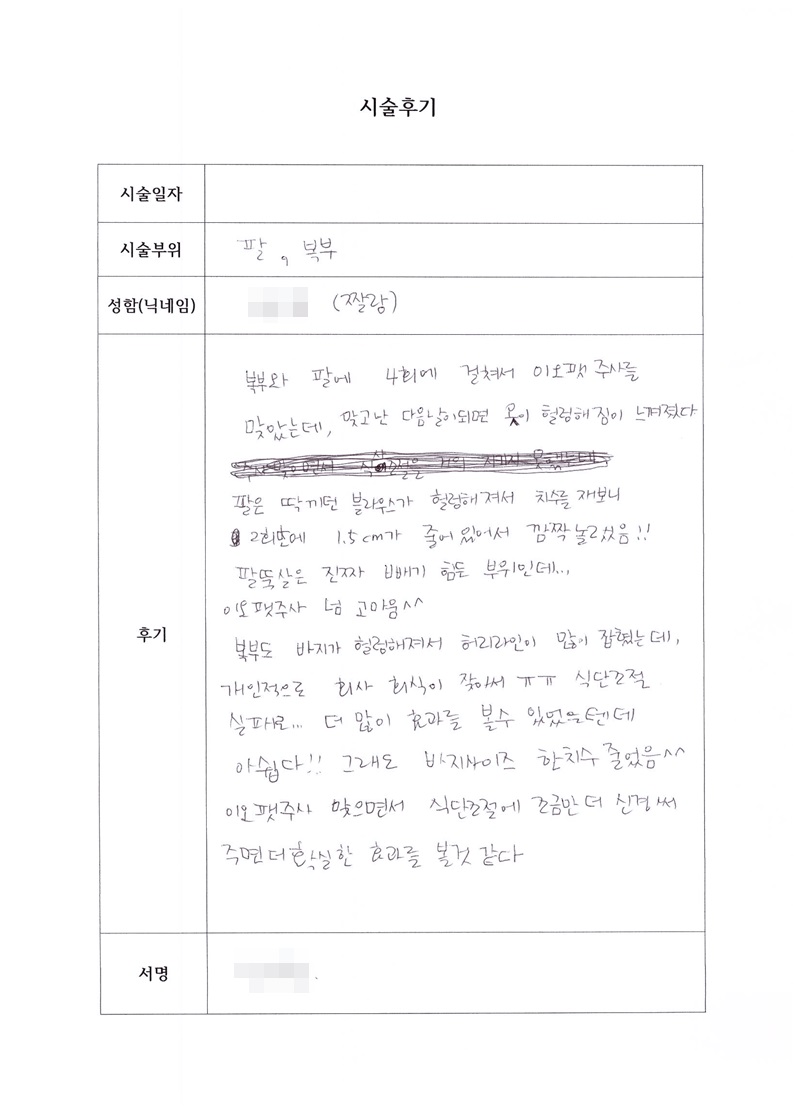 시술후기
시술일자
시술부위 팔, 복부
성함(닉네임) (짤랑)
후기
복부와 팔에 4회에 걸쳐서 이오팻 주사를
맞았는데, 맞고난 다음날이되면 옷이 헐렁해짐이 느껴졌다
팔은 딱끼던 블라우스가 헐렁해져서 치수를 재보니
2회만에 1.5cm가 줄어있어서 깜짝놀랐음!!
팔뚝살은 진짜 빼기 힘든 부위인데...
이오팻주사 넘 고마움^^
복부도 바지가 헐렁해져서 허리라인이 많이 잡혔는데,
개인적으로 회사 회식이 잦아서 ㅠㅠ 식단조절
실패로... 더 많이 효과를 볼수 있었을텐데
아쉽다!! 그래도 바지사이즈 한치수 줄었음^^
이오팻주사 맞으면서 식단조절에 조금만 더 신경써
주면 더 확실한 효과를 볼것 같다
서명